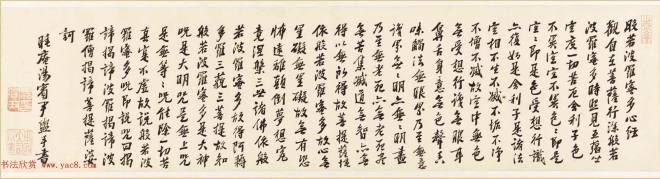 般若波羅蜜多心經
觀自在菩薩行深般若
波羅蜜多時照見五蘊皆
空度一切苦厄舍利子色
不異空空不異色色即是
空空即是色受想行識
亦復如是舍利子是諸法
空相不生不滅不垢不淨
不增不減故空中無色
無受想行識無眼耳
鼻舌身意無色聲香
味觸法無眼界乃至無意
識界無無明亦無無明盡
乃至無老死亦無老死盡
無苦集滅道無智亦無
得以無所得故菩提薩埵
依般若波羅蜜多故心無
罣礙無罣礙故無有恐
怖遠離顛倒夢想究
竟涅槃三世諸佛依般
若波羅蜜多故得阿耨
多羅三藐三菩提故知
般若波羅蜜多是大神
咒是大明咒是無上咒
是無等等咒能除一切苦
真實不虛故說般若波
羅蜜多咒即說咒曰揭
諦揭諦波羅揭諦波
羅僧揭諦菩提薩婆
訶
睡庵湯賓尹盥手書
书法欣赏 www.yac8.com